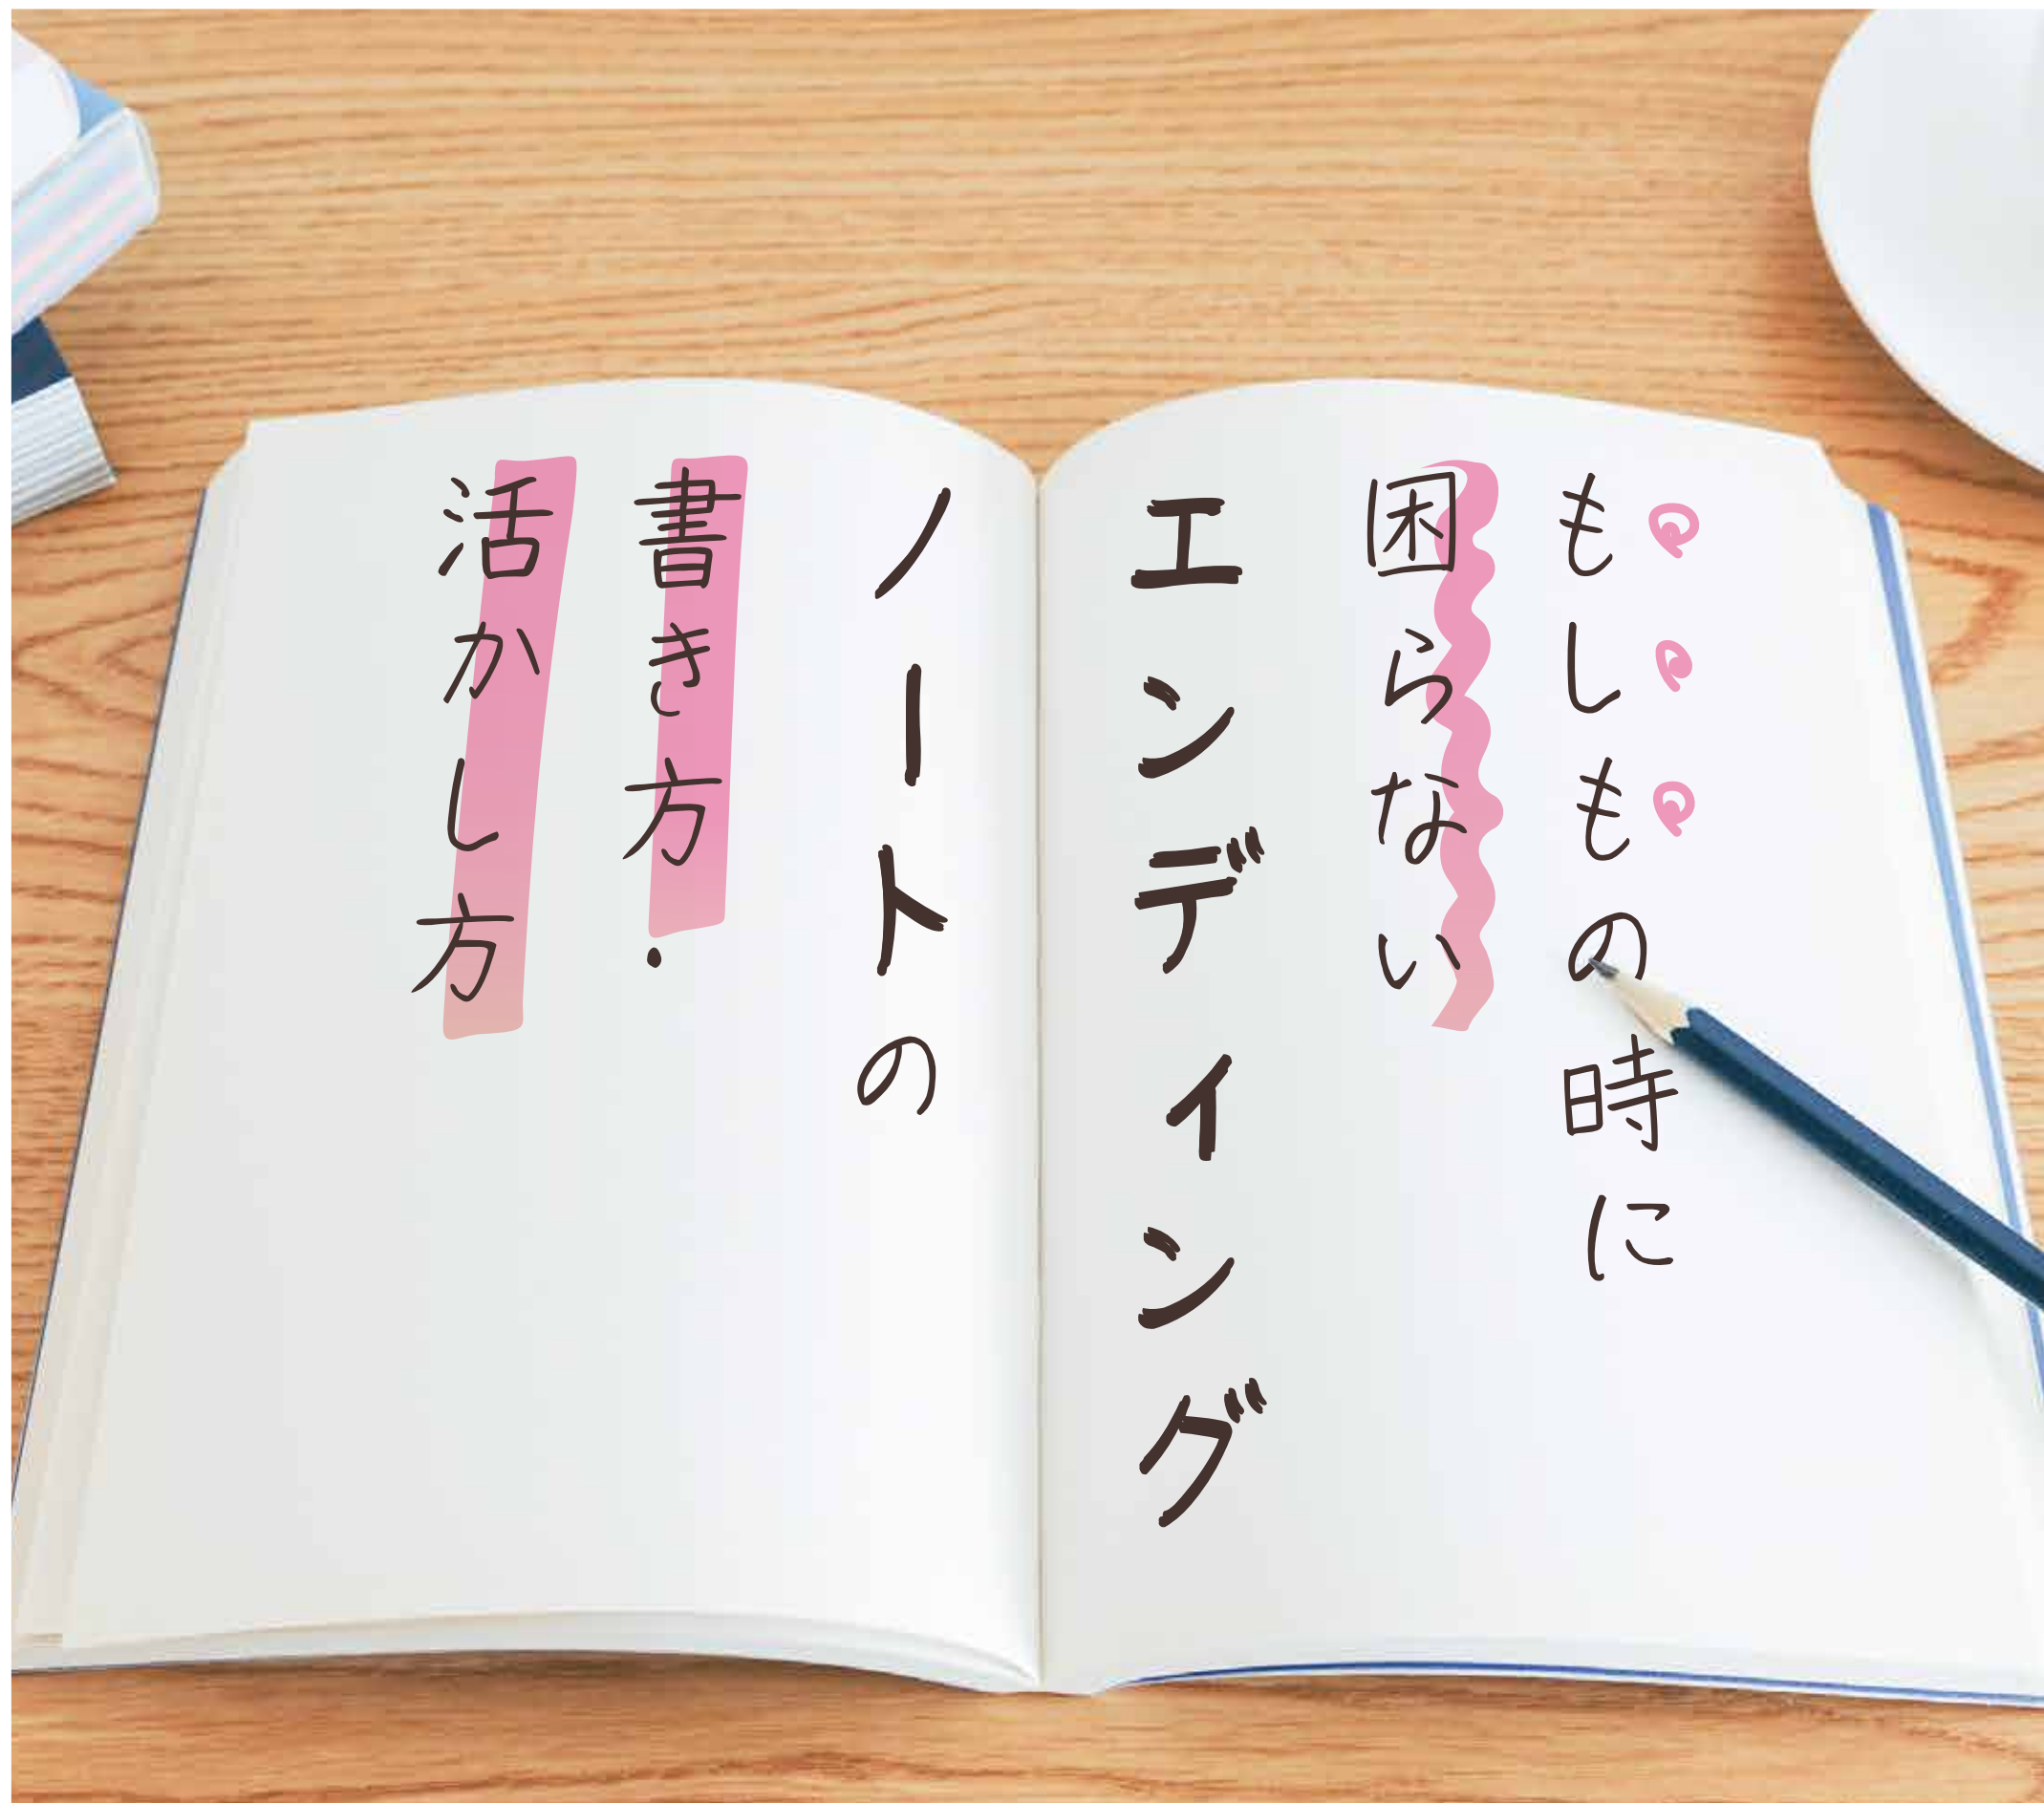 もしもの時に
困らない
エンディング
ノートの
書き方・
活かし方